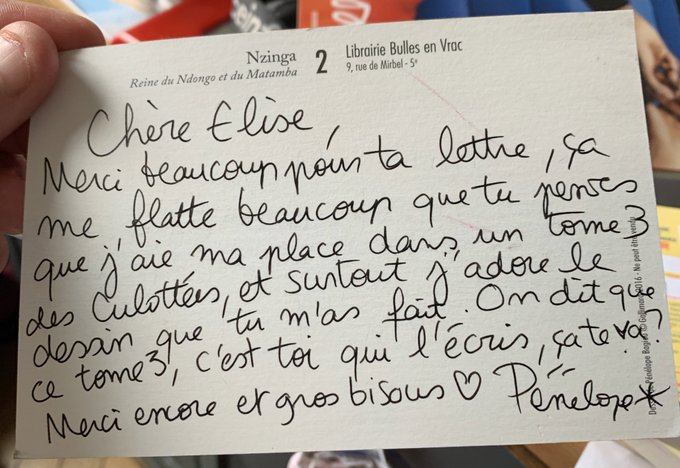 Nzinga
Reine du Ndongo et du Matamba
2
Librairie Bulles en Vrac
9, rue de Mirbel - 5e
Chère Elise,
Merci beaucoup pour ta lettre, ça
me flatte beaucoup que tu penses
que j'aie ma place dans un tome 3
des Culottées, et surtout j'adore le
dessin que tu m'as fait. On dit que
ce tome 3, c'est toi qui l'écris, ça te va?
Merci encore et gros bisous ♡ Pénélope
Pénélope Bagieu © Gallimard 2016 - Ne peut être vendu